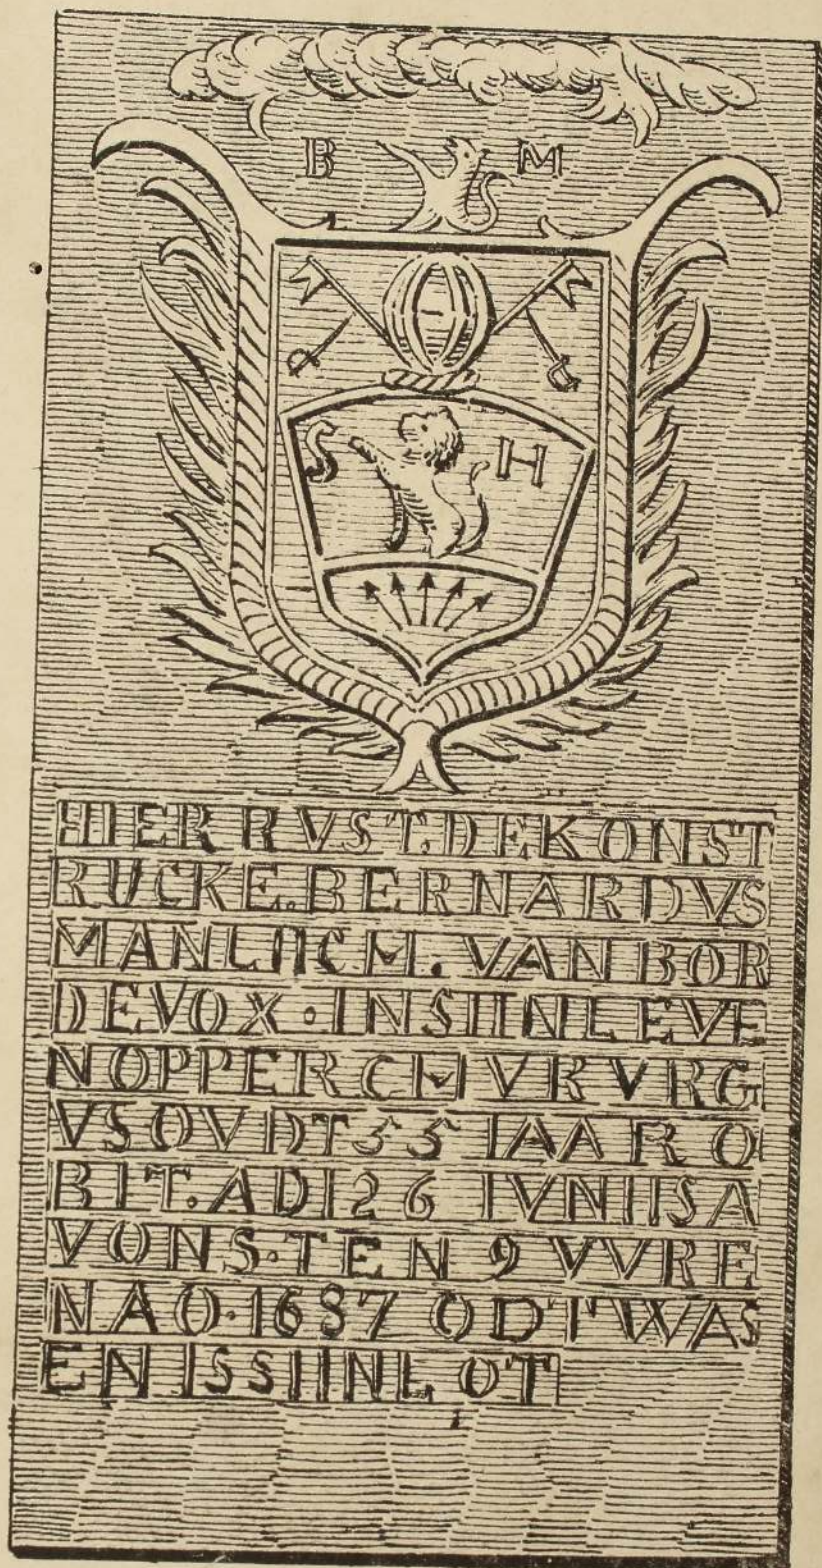 B M
S H
HIER RVST.DEKONST
RUCKE.BERNARDVS
MANLIICH. VAN BOR
DEVOX · INSIINLEVE
NOPPERCHIVRVRG
VSOVDT 55 IAARO
BIT.ADI26 IVNIISA
VONS.TEN 9 VVRE
NAO·1687 ODTWAS
ENISSIINLOT